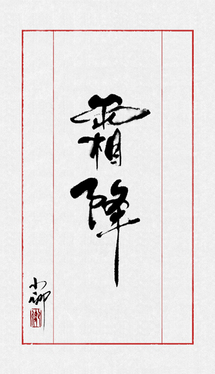 霜降
小卿